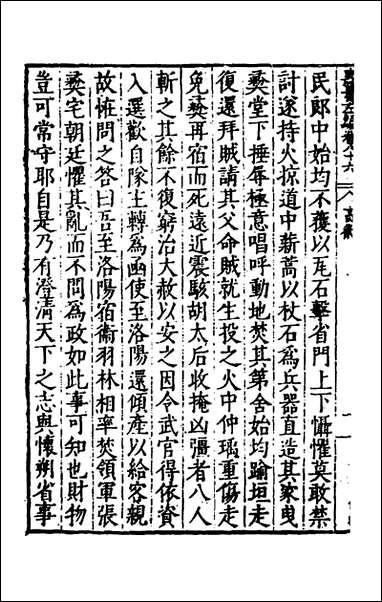 民郎中始均不獲以瓦石擊省門上下懾懼莫敢禁
討遂持火掠道中薪蒿以杖石為兵器直造其家曳
彝堂下捶辱極意唱呼動地焚其第舍始均踰垣走
復還拜賊請其父命賊就生投之火中仲瑀重傷走
免彝再宿而死遠近震駭胡太后收掩凶彊者八人
斬之其餘不復窮治大赦以安之因令武官得依資
入選歡自隊主轉為函使至洛陽還傾產以給客親
故恠問之答曰吾至洛陽宿衛羽林相率焚領軍張
彝宅朝廷懼其亂而不問為政如此事可知也財物
豈可常守耶自是乃有澄清天下之志與懷朔省事